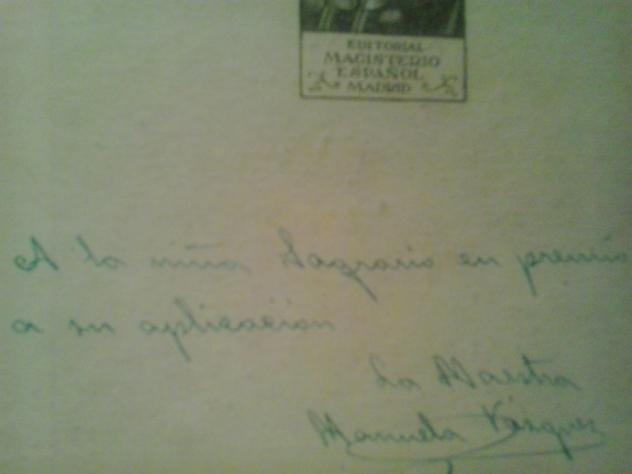 EDITORIAL
MAGISTERIO
ESPAÑOL
MADRID
A la niña Sagrario en premio
a su aplicación
La Maestra
Manuela Vásquez